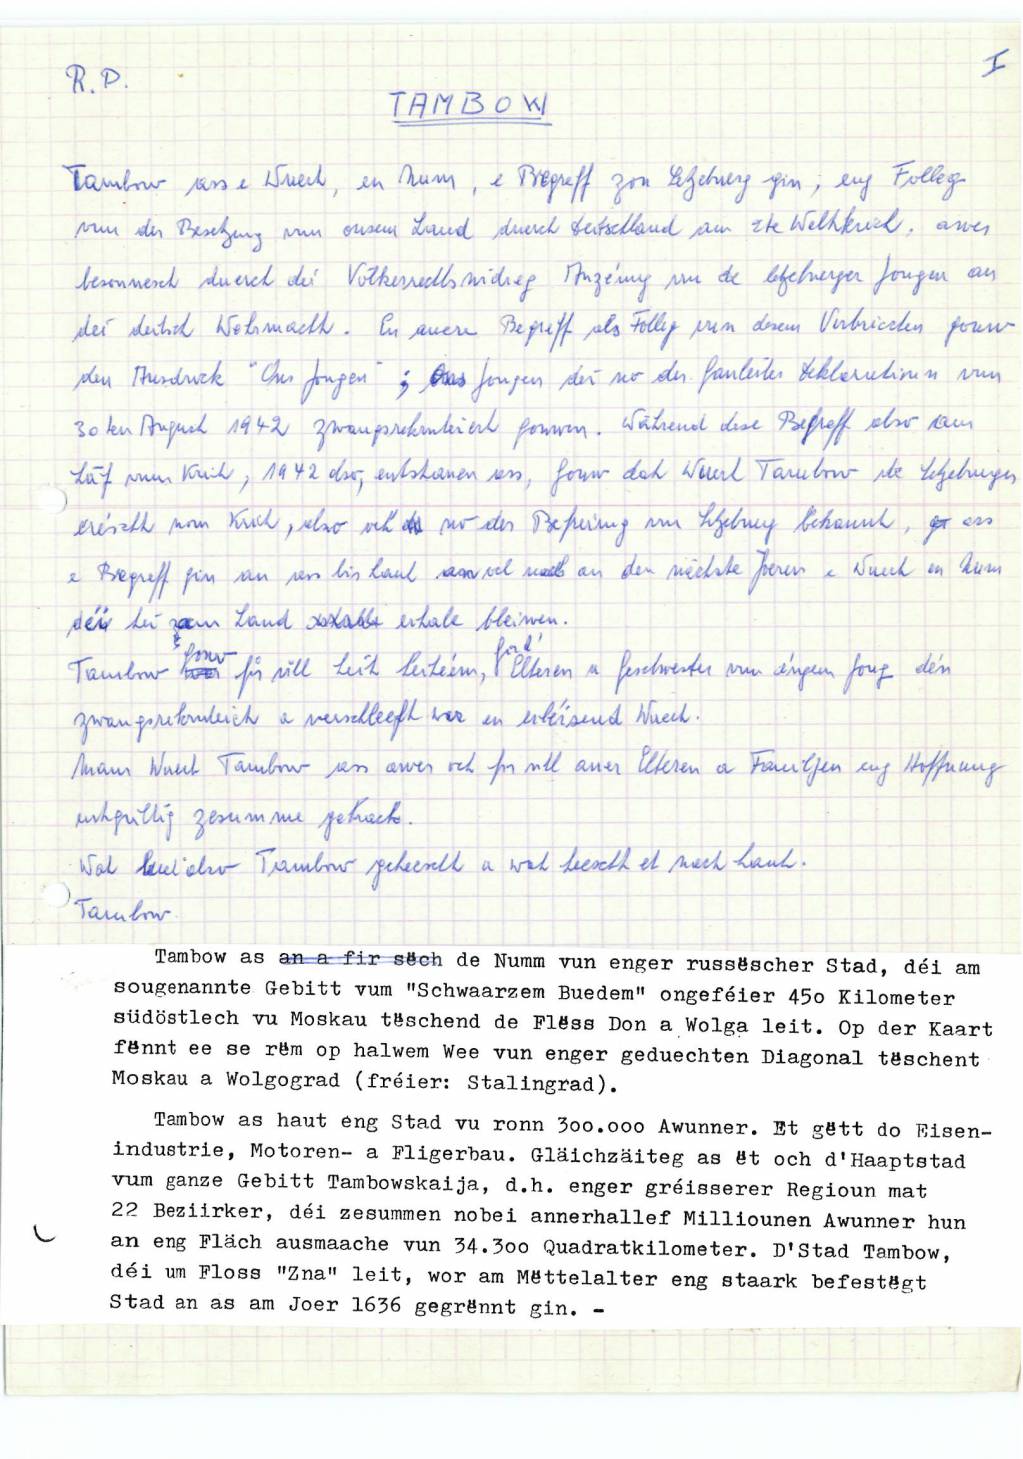 R.D.
I
TAMBOW
Tambow ass e Wuert, en Num, e Begreff zou Letzebuerg gin, eng Folleg
vun der Besetzung vun onsem Land duerch Deitschland am 2te Weltkrich, awer
besonnesch duerch déi Volkerrechtswidreg Anzéiung vun de letzebuerger Jongen an
déi deitsch Wehrmacht. En anere Begreff als Folleg vun desem Verbriechen gouw
den Ausdruck "Ons Jongen"; Jongen déi no der Gauleiter Deklaratioun vum
30ten August 1942 zwangsrekrutéiert gouwen. Während dese Begreff also am
Läf vum Krich, 1942 also, entstanen ass, gouw dat Wuert Tambow de Letzeburger
eréischt nom Krich, also no der Befreiung vun Letzeburg bekannt, ass
e Begreff gin an ass bis haut och an den nächste Joeren e Wuert en Num
déi hei am Land erhale bleiwen.
Tambow gouw fir vill Leit, Elteren a Geschwester vun éngem Jong dén
zwangsrekrutéiert a verschleeft war en erléisend Wuert.
Wuert Tambow ass awer och fir vill aner Elteren a Familjen eng Hoffnung
zesumme gebrach.
Wat huet also Tambow geheescht a wat heescht et nach haut.
Tambow
Tambow as an a fir sëch de Numm vun enger russëscher Stad, déi am
sougenannte Gebitt vum "Schwaarzem Buedem" ongeféier 45o Kilometer
südöstlech vu Moskau tëschend de Flëss Don a Wolga leit. Op der Kaart
fënnt ee se rëm op halwem Wee vun enger geduechten Diagonal tëschent
Moskau a Wolgograd (fréier: Stalingrad).
Tambow as haut eng Stad vu ronn 3oo.ooo Awunner. Et gëtt do Eisen-
industrie, Motoren- a Fligerbau. Gläichzäiteg as ët och d'Haaptstad
vum ganze Gebitt Tambowskaija, d.h. enger gréisserer Regioun mat
22 Beziirker, déi zesummen nobei annerhallef Milliounen Awunner hun
an eng Fläch ausmaache vun 34.3oo Quadratkilometer. D'Stad Tambow,
déi um Floss "Zna" leit, wor am Mëttelalter eng staark befestëgt
Stad an as am Joer 1636 gegrënnt gin. -